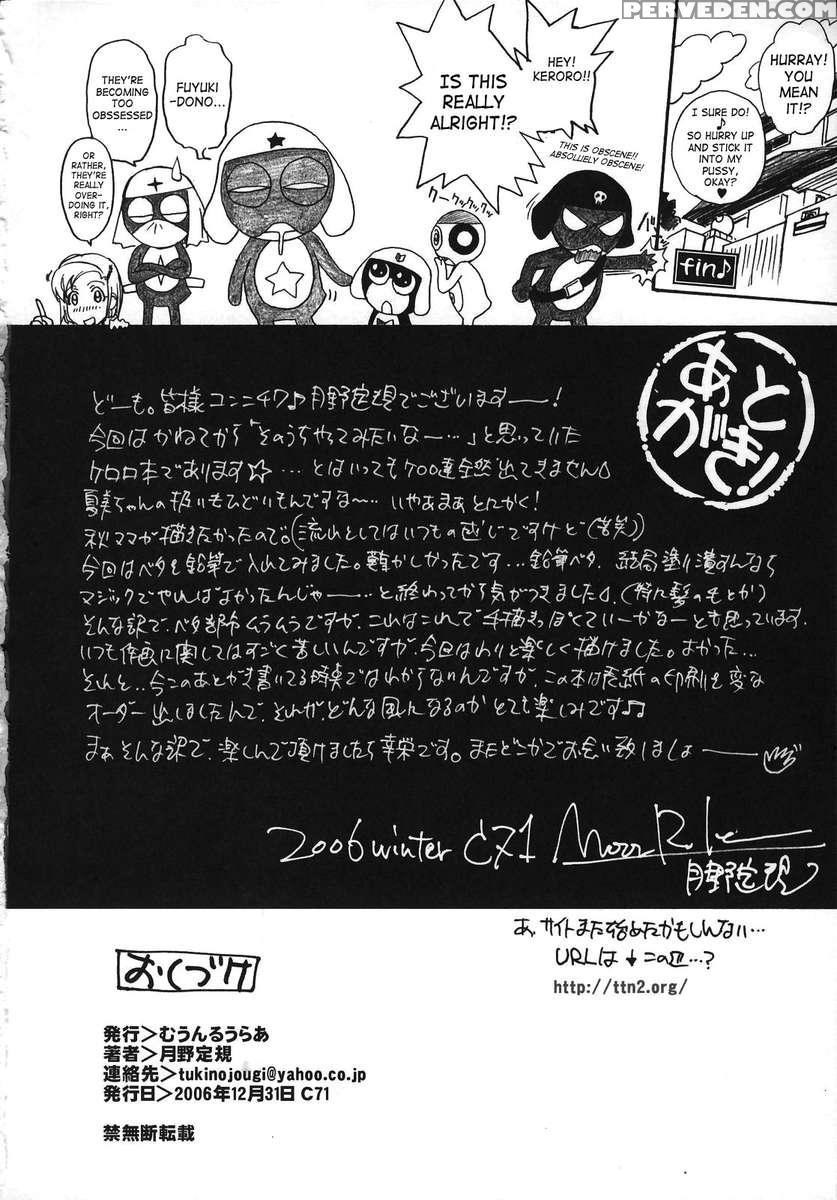 PERVEDEN.COM
HURRAY!
YOU
MEAN
IT!?
fin♪
HEY!
KERORO!
IS THIS
REALLY
ALRIGHT!?
THIS IS OBSCENE!!
ABSOLUELY OBSCENE!
クークックックッ
FUYUKI
-DONO...
THEY'RE
BECOMING
TOO
OBSSESSED
...
OR
RATHER,
THEY'RE
REALLY
OVER-
DOING IT,
RIGHT?
あとがき!
どーも。皆様コンニチワ♪月野定規でございますーー!
今回はかねてから「そのうちやってみたいなー…」と思っていた
ケロロ本であります☆…とはいってもケロロ達全然出てきません
夏美ちゃんの扱いもひどいもんですな〜…いやあまあとにかく!
秋ママが描きたかったので。(流れとしてはいつもの感じですけど(苦笑))
今回はベタを鉛筆で入れてみました。難かしかったです…鉛筆ベタ。結局塗り潰すんなら
マジックでやればよかったんじゃー…と終わってから気がつきました。(特に髪の毛とか)
そんな訳で、ベタ部分ムラムラですが、これはこれで手描きっぽくていーかなーとも思っています.
いつも作画に関してはすごく苦しいんですが、今回はわりと楽しく描けました。よかった…
それと…今このあとがき書いてる時点ではわからないんですが、この本は表紙の印刷を変な
オーダー出しましたんで、それがどんな風になるのかとても楽しみです♪
まぁそんな訳で、楽しんで頂けましたら幸栄です。またどこかでお会い致しましょーー
2006 winter C71
月野定規
あ、サイトまた始めたかもしんない…
URLは↓この辺…?
http://ttn2.org/
おくづけ
発行＞むうんるうらあ
著者＞月野定規
連絡先＞tukinojougi@yahoo.co.jp
発行日＞2006年12月31日 C71
禁無断転載